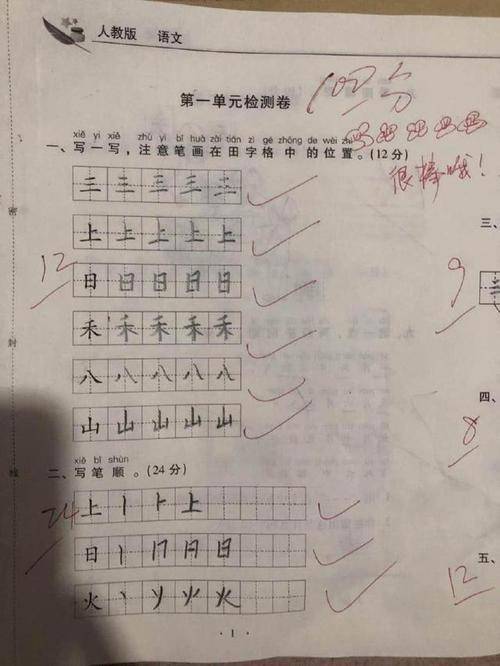 人教版 语文
第一单元检测卷 100分
xiě yi xiě zhù yì bǐ huà zài tián zì gé zhōng de wèi zhì
一、写一写,注意笔画在田字格中的位置。(12分)
很棒哦!
三 三 三 三 三
上 上 上 上 上
12
日 日 日 日 日
禾 禾 禾 禾 禾
八 八 八 八 八
山 山 山 山 山
xiě bǐ shùn
二、写笔顺。(24分)
24
上 丨 ⺊ 上
日 丨 冂 日 日
火 丶 丷 火 火
· 1 ·
三、
9
四、
8
五、
12
密
封
线